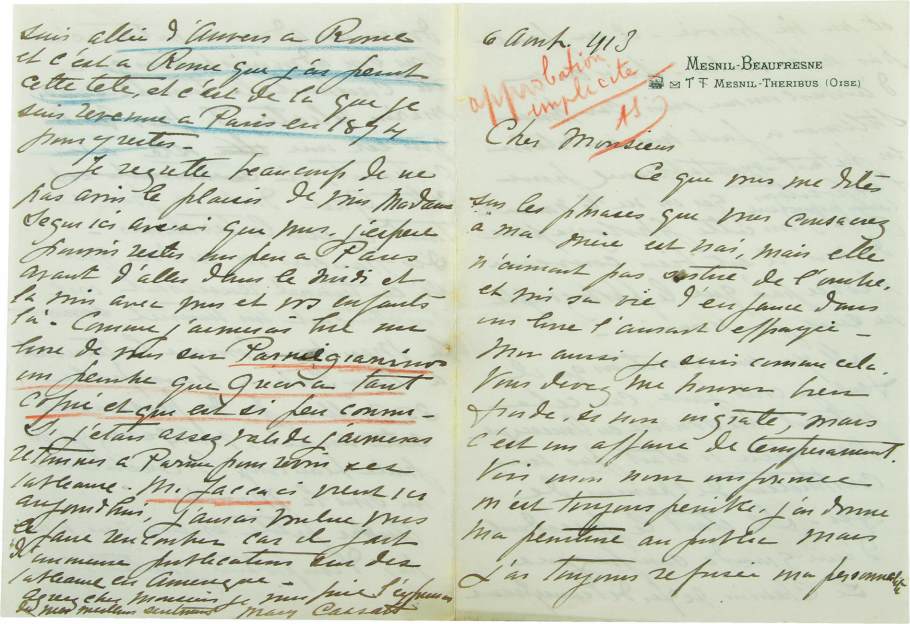 6 Aout. 1913
MESNIL-BEAUFRESNE
MESNIL-THERIBUS (OISE)
approbation
implicite
AS
Cher Monsieur
Ce que vous me dites
sur les phrases que vous consacrez
à ma mère est vrai, mais elle
n'aimant pas sortir de l'ombre,
et voir sa vie d'enfance dans
un livre l'aurait effrayée -
Moi aussi je suis comme cela.
Vous devez me trouver bien
froide, si non ingrate, mais
c'est une affaire de temperament.
Voir mon nom imprimée
m'est toujours penible, j'ai donné
ma peinture au public mais
j'ai toujours refusée ma personnalité
suis allée d'Anvers a Rome
et c'est a Rome que j'ai peint
cette tete, et c'est de là que je
suis revenue a Paris en 1874
pour y rester -
Je regrette beaucoup de ne
pas avoir le plaisir de voir Madame
Segard ici avec vous, j'espere
pouvoir rester un peu a Paris
avant d'aller dans le midi et
la voir avec vous et vos enfants
là - Comme j'aimerais lire un
livre de vous sur Parmegianino
un peintre que Greco a tant
copié et qui est si peu connu -
Si j'etais assez valide j'aimerais
retourner a Parme pour revoir ses
tableaux - M. Jaccaci vient ici
aujourd'hui, j'aurais voulue vous
le faire rencontrer car il fait
d'immense publication sur des
tableaux en Amerique -
agreez cher monsieur je vous prie l'expression
de mes meilleurs sentiments Mary Cassatt